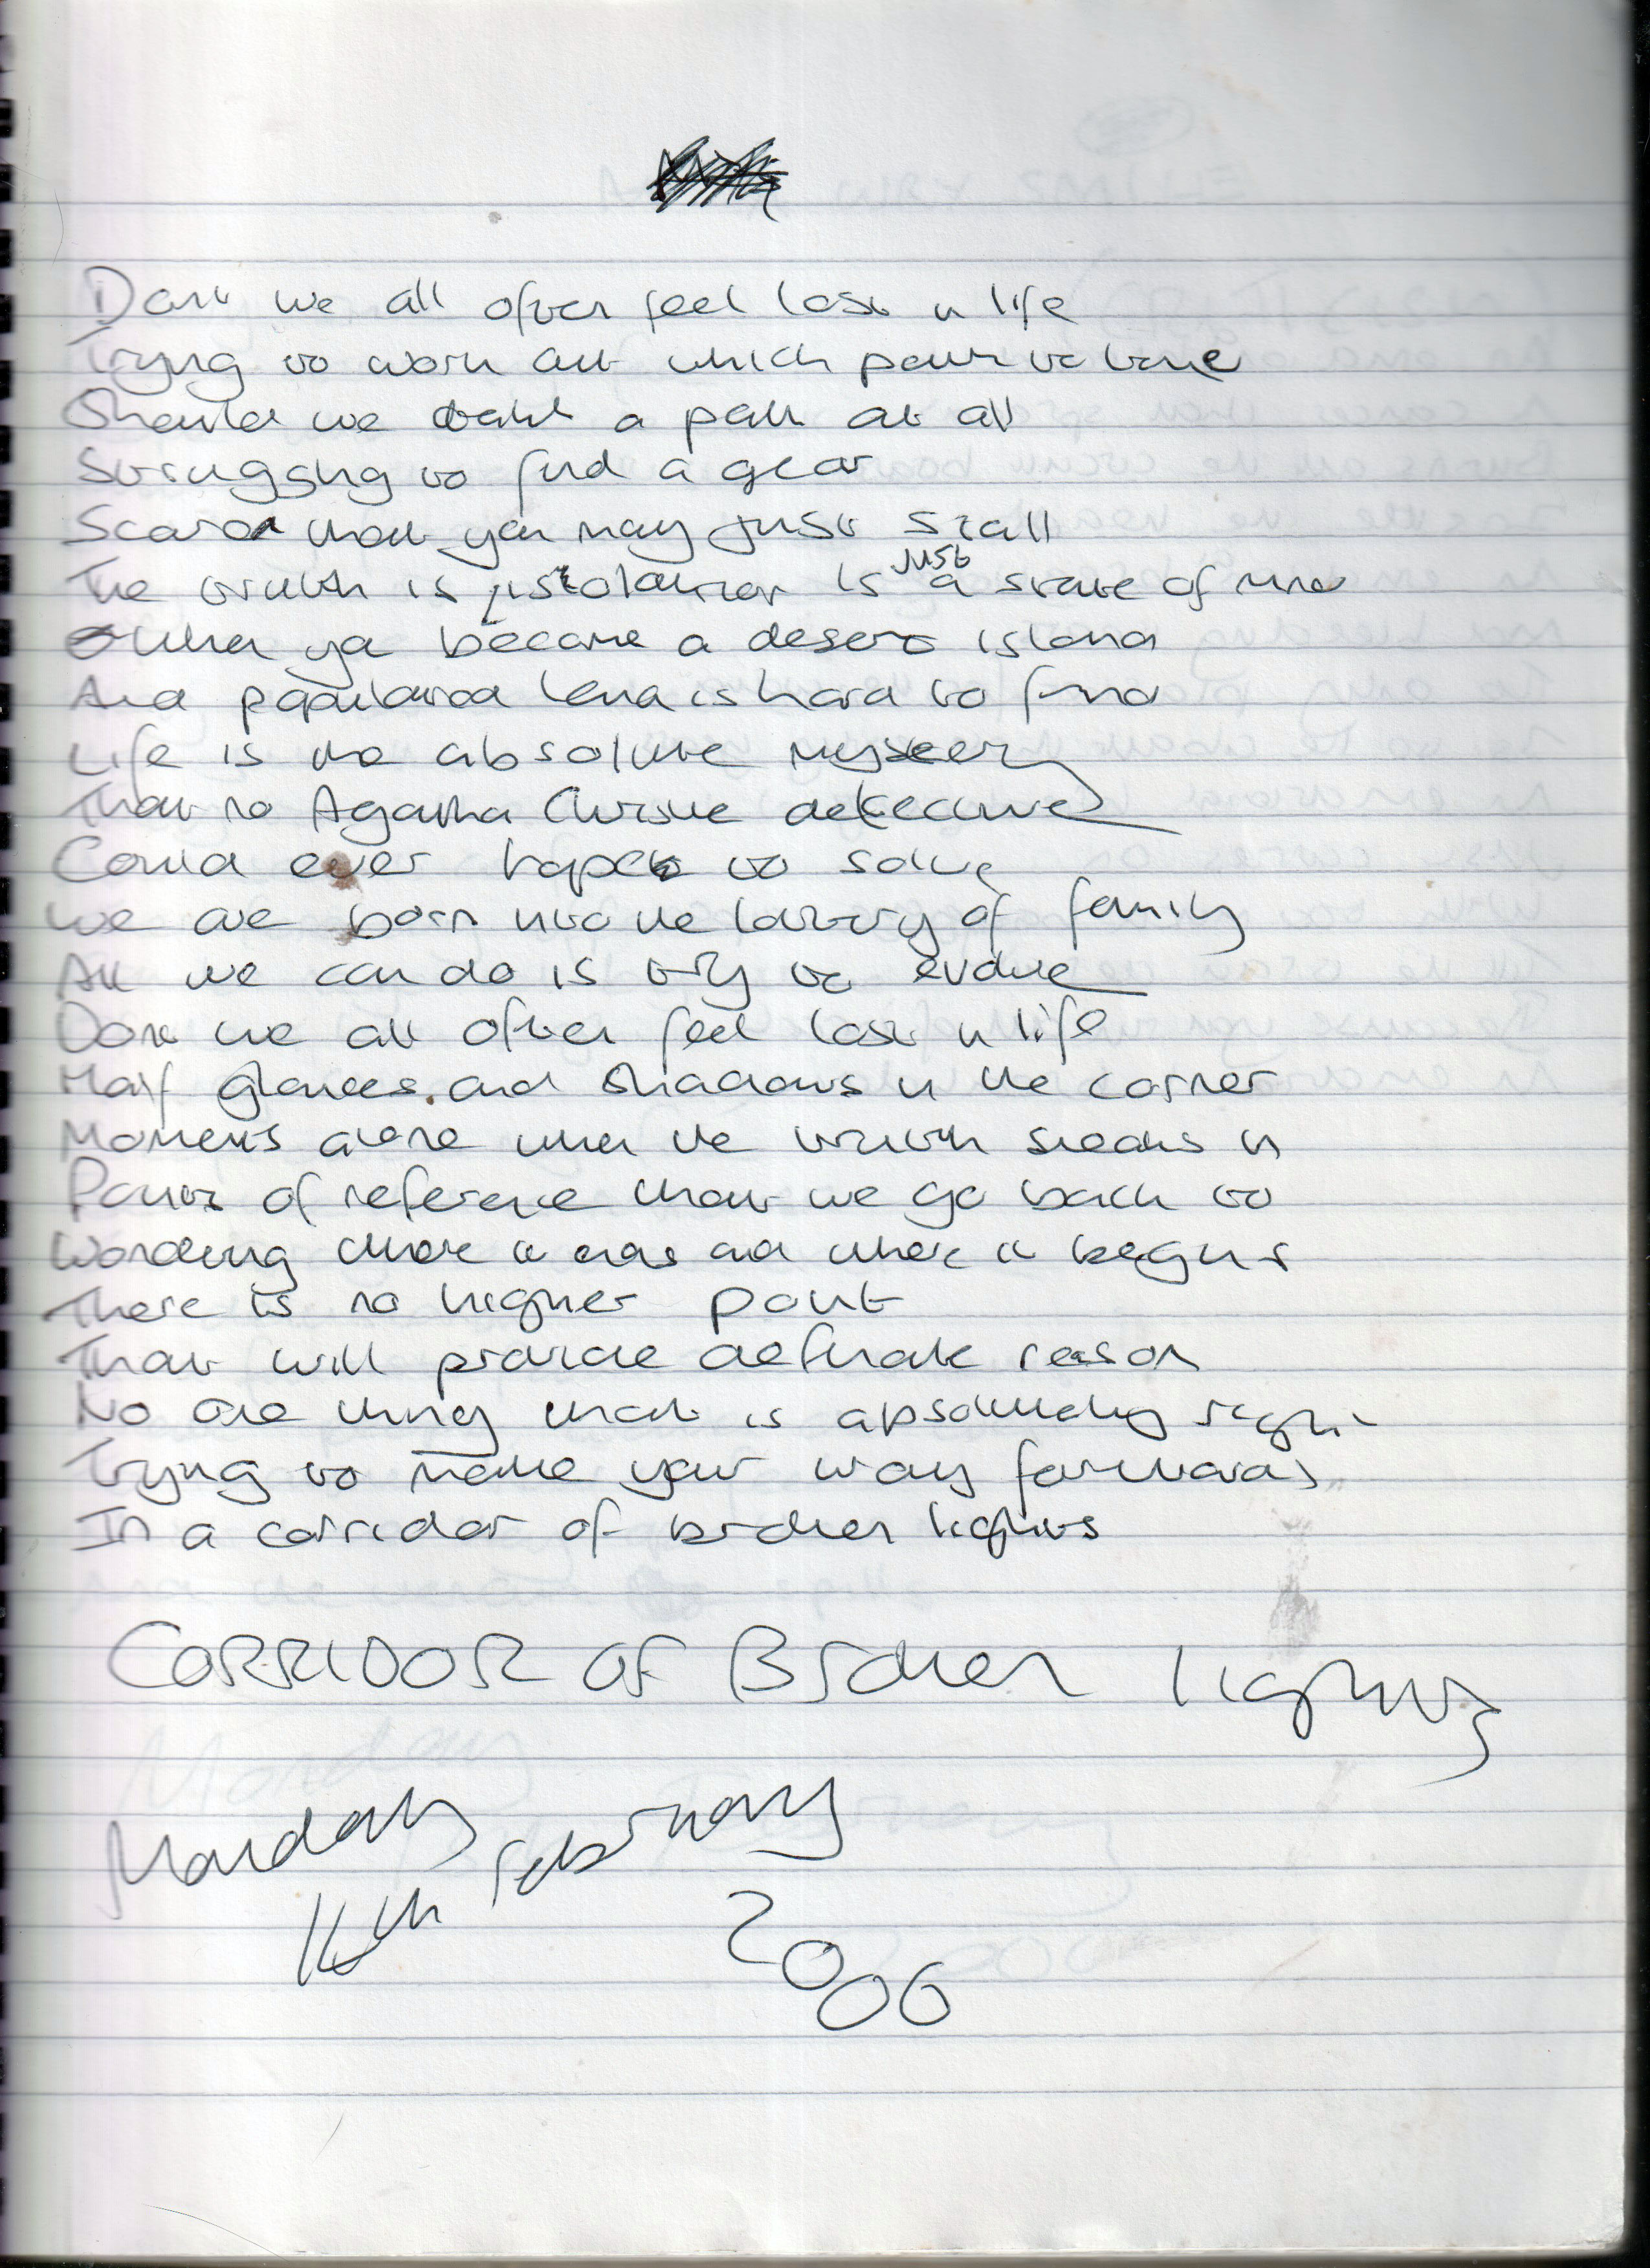 Dont we all often feel lost in life
Trying to work out which path to take
Should we take a path at all
Struggling to find a gear
Scared that you may just stall
The truth is isolation is just a state of mind
When you become a desert island
And populated land is hard to find
Life is the absolute mystery
That no Agatha Christie detective
Could ever hope to solve
We are born into the lottery of family
All we can do is try to evolve
Dont we all often feel lost in life
Half glances and shadows in the corner
Moments alone when the truth sneaks in
Points of reference that we go back to
Wondering where it ends and where it begins
There is no higher point
That will provide definate reason
No one thing that is absolutely right
Trying to make your way forwards
In a corridor of broken lights
CORRIDOR OF Broken lights
Monday
February
2006